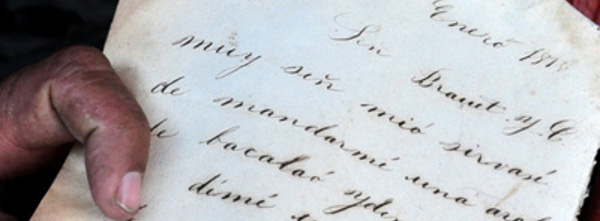 Enero 18
Sen Braut y C
muy señ mió sirvasé
de mandarmé una
de bacalaó
dimé